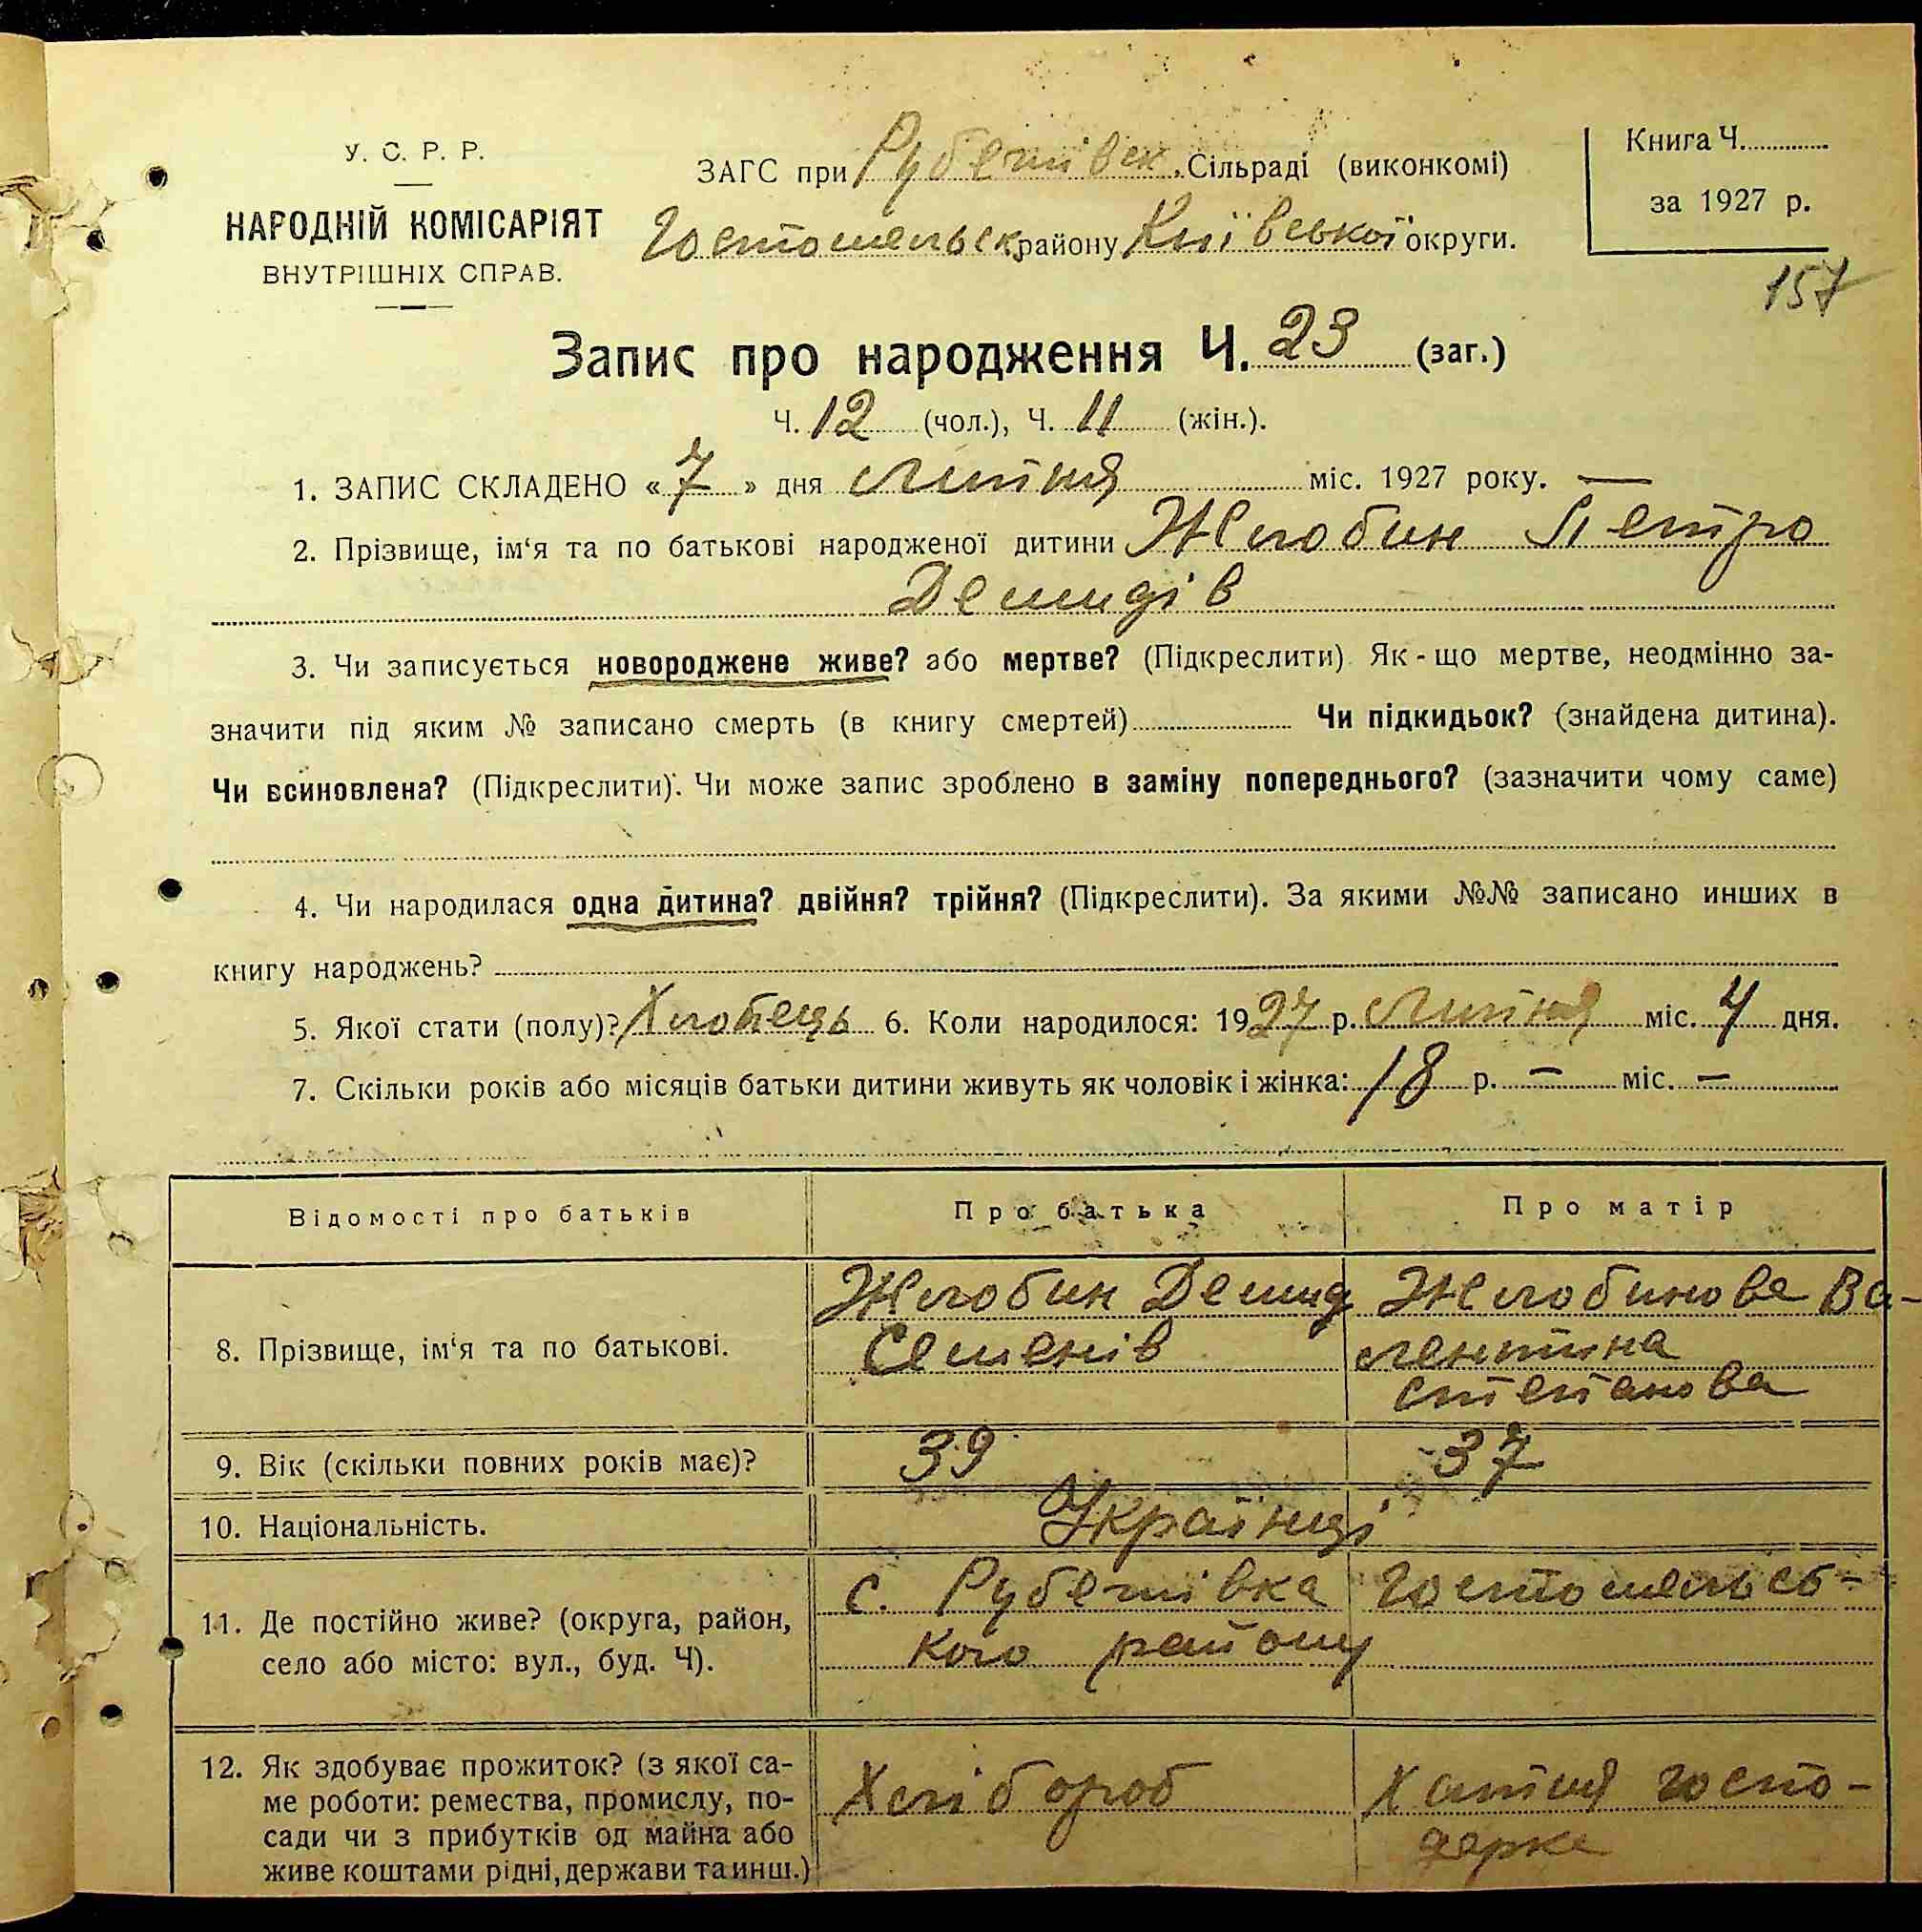 У. С. Р. Р.
НАРОДНІЙ КОМІСАРІЯТ
ВНУТРІШНІХ СПРАВ.
ЗАГС при Рубежівск. Сільраді (виконкомі)
Гостомельськ. району Київської округи.
Книга Ч.
за 1927 р.
157
Запис про народження Ч. 23 (заг.)
Ч. 12 (чол.), Ч. 11 (жін.).
1. ЗАПИС СКЛАДЕНО « 7 » дня Липня міс. 1927 року. —
2. Прізвище, ім‘я та по батькові народженої дитини Жлобин Петро
Демидів
3. Чи записується новороджене живе? або мертве? (Підкреслити) Як-що мертве, неодмінно за-
значити під яким № записано смерть (в книгу смертей) Чи підкидьок? (знайдена дитина).
Чи всиновлена? (Підкреслити). Чи може запис зроблено в заміну попереднього? (зазначити чому саме)
4. Чи народилася одна дитина? двійня? трійня? (Підкреслити). За якими №№ записано инших в
книгу народжень?
5. Якої стати (полу)? Хлопець 6. Коли народилося: 1927 р. Липня міс. 4 дня.
7. Скільки років або місяців батьки дитини живуть як чоловік і жінка: 18 р. — міс. —
Відомості про батьків Про батька Про матір
8. Прізвище, ім‘я та по батькові.
Жлобин Демид
Семенів
Жлобинова Ва-
лентина
степанова
9. Вік (скільки повних років має)? 39 37
10. Національність. Українці
11. Де постійно живе? (округа, район,
село або місто: вул., буд. Ч).
с. Рубежівка Гостомельсь-
кого району
12. Як здобуває прожиток? (з якої са-
ме роботи: ремества, промислу, по-
сади чи з прибутків од майна або
живе коштами рідні, держави та инш.)
Хлібороб
Хатня госпо-
дарка